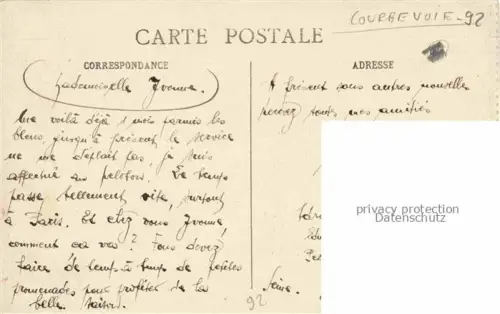 COURBEVOIE-92
CARTE POSTALE
CORRESPONDANCE
ADRESSE
Mademoiselle Yvonne.
Me voilà déjà 1 mois parmis les
bleus, jusqu'à présent le service
ne me déplait pas, je suis
affecté au peloton. Le temps
passe tellement vite, surtout
à Paris. Et chez vous Yvonne
comment ca va? Vous devez
faire de temps à temps de petites
promenades pour profiter de la
belle saison.
A présent sans autres nouvelles
recevez toutes mes amitiés
privacy protection
Datenschutz
Seine.
92